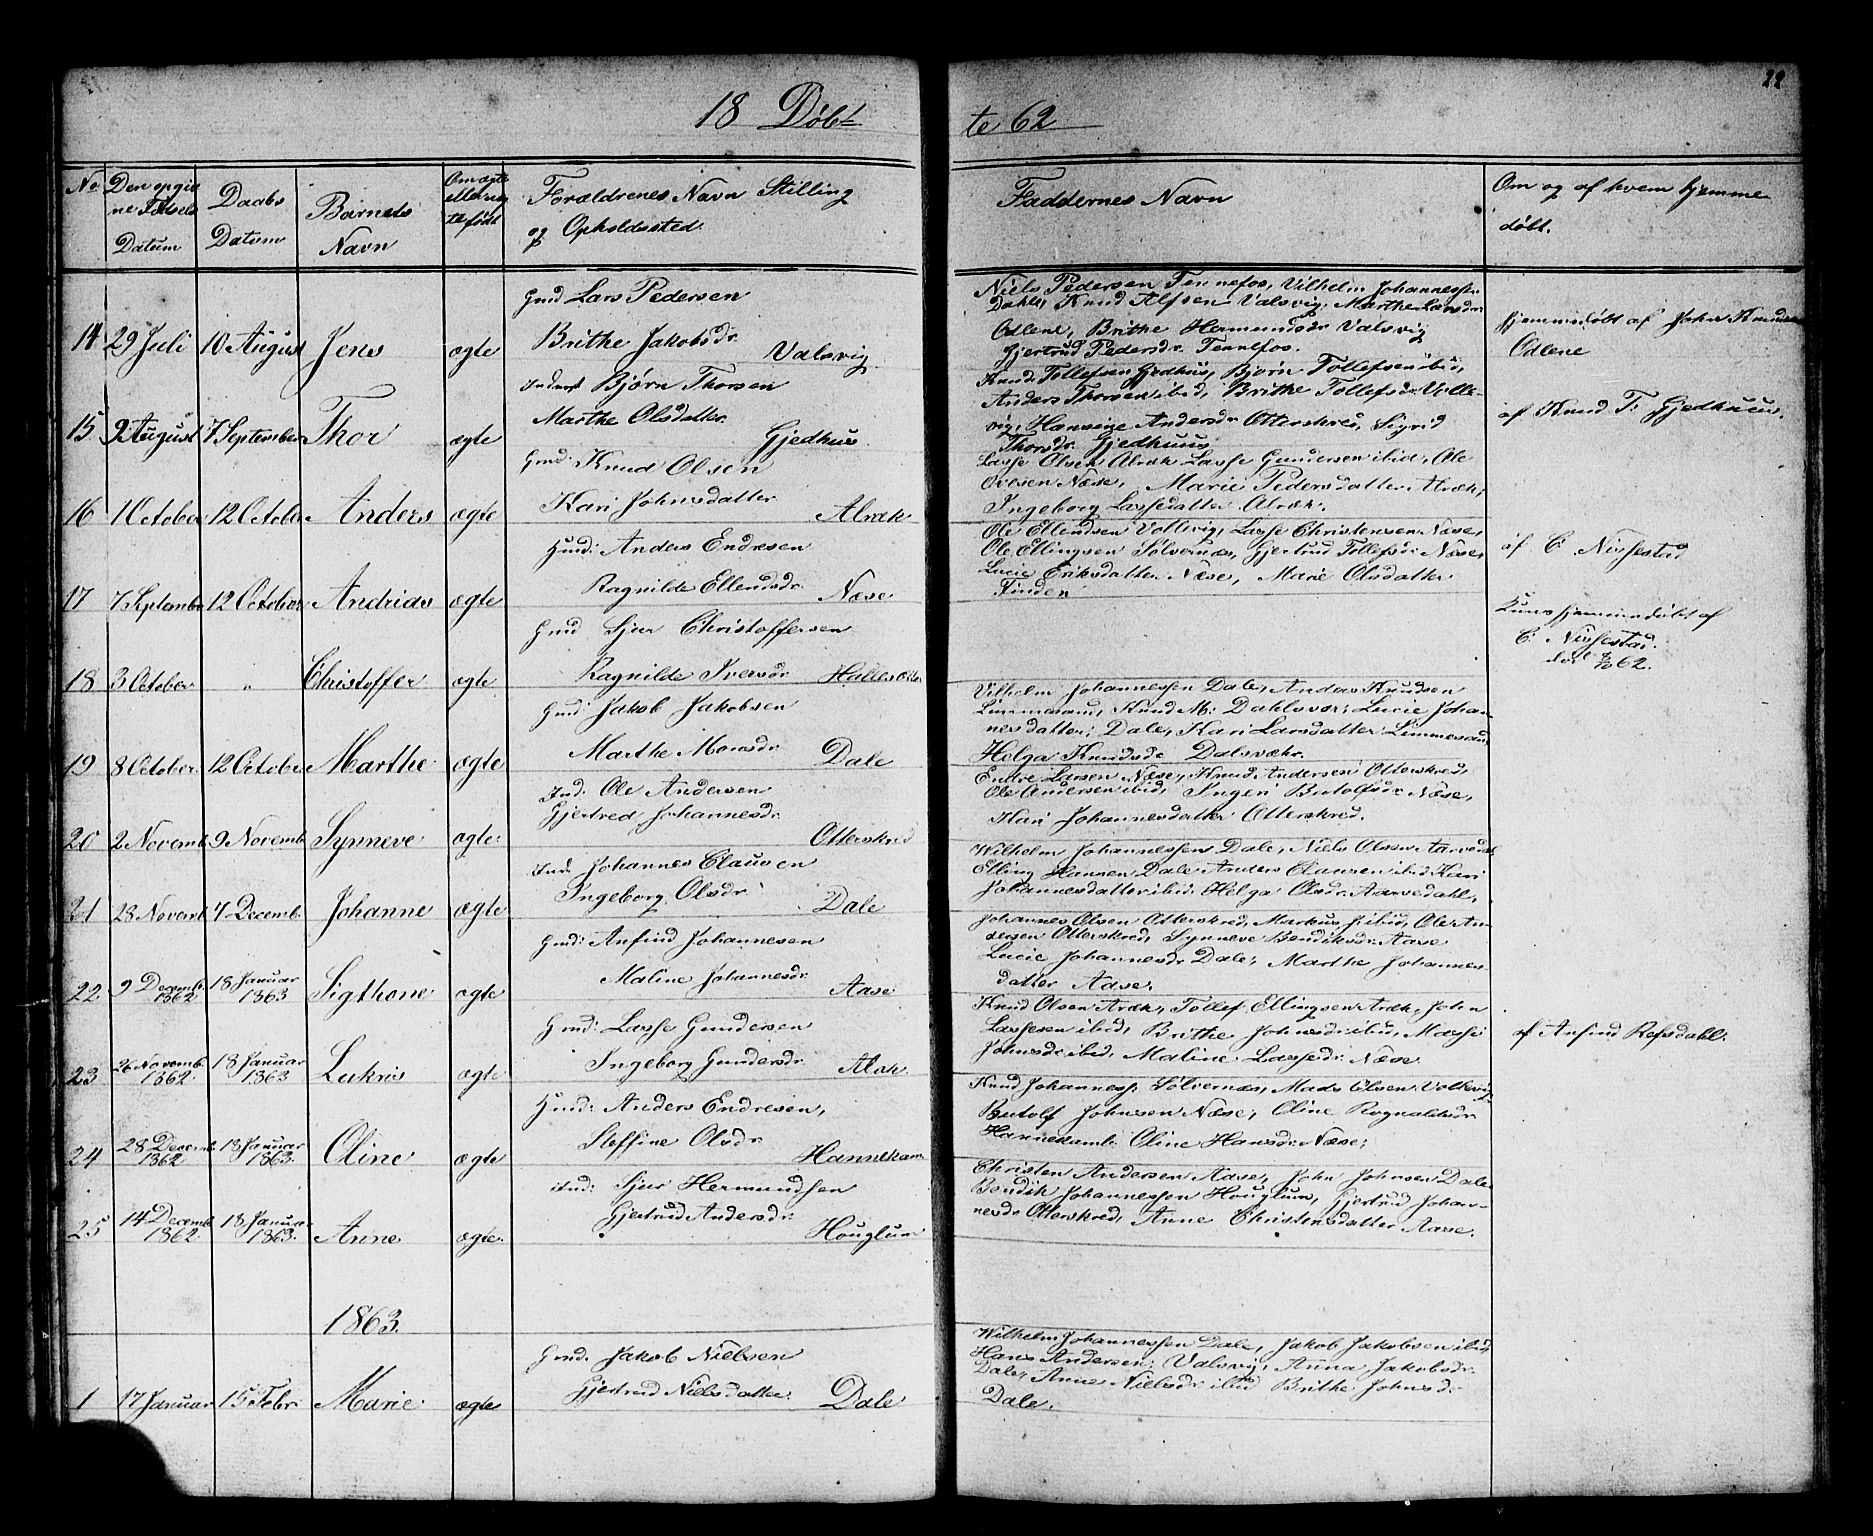 22
18 Døbt
te 62
No
Den opgiv
ne Fødsels
Datum
Daabs
Datum
Barnets
Navn
Om ægte
eller uæg
te født
Forældrenes Navn Stilling
og Opholdssted
Faddernes Navn
Om og af hvem hjemme
døbt.
14 29 Juli 10 August Jens ægte
Gmd Lars Pedersen
Brithe Jakobsdr. Valsvig
Niels Pedersen Tennefos, Vilhelm Johannessen
Dahle, Knud Alfsen Valsvig, Marthe Larsdr
Odlene, Brithe Hermundsdr Valsvig
Gjertrud Pedersdr. Tennefos.
hjemmedøbt af John Knudsen
Odlene
15 9 August 7 September Thor ægte
Inderst Bjørn Thorsen
Marthe Olsdatter Gjedhus
Knud Tollefsen Gjedhus, Bjørn Tollefsen ibid,
Anders Thorsen ibid, Brithe Tollefsdr Volle-
vig, Hansine Andersdr Otterskred, Sigrid
Thorsdr. Gjedhuus
af Knud T. Gjedhuus.
16 1 October 12 October Anders ægte
Gmd: Knud Olsen
Kari Johnsdatter Alræk
Lasse Olsen Alræk Lasse Gundersen ibid, Ole
Olsen Næse, Marie Pedersdatter Alræk,
Ingeborg Lassedatter Alræk.
17 7 Septembr 12 October Andrias ægte
Huusd: Anders Endresen
Ragnilde Ellendsdr. Næse
Ole Ellendsen Vollevig, Lasse Christensen Næse,
Ole Ellingsen Sølvernæs, Gjertrud Tollefsdr Næse,
Lucie Eriksdatter Næse, Marie Olsdatter
Finden
af C Nissestad
18 3 October " Christoffer ægte
Gmd Sjur Christoffersen
Ragnilde Iversdr Hallesæter
Kuns hjemmedøbt af
C Nissestad.
død 62.
19 8 October 12 October Marthe ægte
Gmd: Jakob Jakobsen
Marthe Monsdr Dale
Vilhelm Johannessen Dale, Anders Knudsen
Limmesand, Knud M: Dahlsvær, Lucie Johan-
nesdatter, Dale, Kari Larsdatter Limmesand
Helga Knudsdr Dalsvæhr.
20 2 Novemb 9 Novemb Synneve ægte
Ind: Ole Andersen
Gjertred Johannesdr. Otterskred
Endre Larsen Næse, Knud Andersen Otterskred,
Ole Andersen ibid, Inger Botolfsdr Næse,
Kari Johannesdatter Otterskred.
21 28 Novemb 7 Decemb Johanne ægte
Ind: Johannes Clausen
Ingeborg Olsdr Dale
Wilhelm Johannessen Dale, Niels Olsen Aarvedal
Elling Hansen Dale Anders Clausen ibid Kari
Johannesdatter ibid. Helga Olsdr. Aarvedahl,
22 9 Decemb. 1862 18 Januar 1863 Sigthone ægte
Gmd: Anfind Johannesen
Maline Johannesdr Aase
Johannes Olsen Otterskred, Markus J ibid, Ole An-
dersen Otterskred, Synneve Bendiksdr Aase
Lucie Johannesdr Dale, Marthe Johannes-
datter Aase.
23 26 Novemb. 1862 18 Januar 1863 Lukris ægte
Gmd: Lasse Gundersen
Ingeborg Gundersdr Alræk
Knud Olsen Aræk, Tollef Ellingsen Aræk, John
Lassesen ibid, Brithe Johnsdr ibid, Massi
Johnsdr ibid, Maline Lassedr. Næse
af Anfind Refsdahl.
24 28 Decemb 1862 18 Januar 1863. Oline ægte
Huusd: Anders Endresen,
Steffine Olsdr Hannekam
Knud Johanness. Sølvernæs, Mads Olsen Vollevig
Botolf Johnsen Næse, Oline Rognaldsdr
Hannekamb Oline Hansdr. Næse;
25 14 Decemb 1862. 18 Januar 1863. Anne ægte.
Ind: Sjur Hermundsen
Gjertrud Andersdr. Houglum
Christen Andersen Aase, John Johnsen Dale
Bendik Johannessen Houglum, Gjertrud Johan-
nesdr Otterskred, Anne Christensdatter Aase.
1863.
1 17 Januar 15 Febr Marie ægte
Gmd. Jakob Nielsen
Gjertrud Nielsdatter. Dale
Wilhelm Johannessen Dale, Jakob Jakobsen ibid
Hans Andersen Valsvig, Anna Jakobsdr.
Dale, Anne Nielsdr ibid Brithe Johnsdr
Dale.